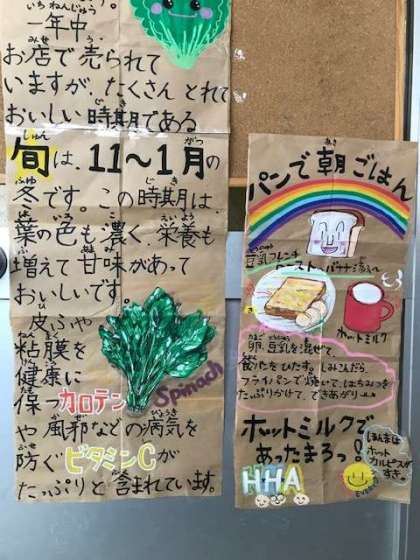 一年中
お店で売られて
いますが、たくさん とれて
おいしい時期である
旬は、11〜1月の
冬です。この時期は、
葉の色も濃く、栄養も
増えて 甘味があって
おいしいです。
皮ふや
粘膜を
健康に
保つカロテン
や風邪などの病気を
防ぐビタミンCが
たっぷりと含まれています。
Spinach
パンで朝ごはん
豆乳フレンチ
トースト
ホットミルク
卵、豆乳を混ぜて、
食パンをひたす。しみこんだら、
フライパンで焼いて、はちみつを
たっぷりかけて、できあがり
ホットミルクで
あったまろっ!
ほんまは
ホット
カルピスが
すき。
HHA